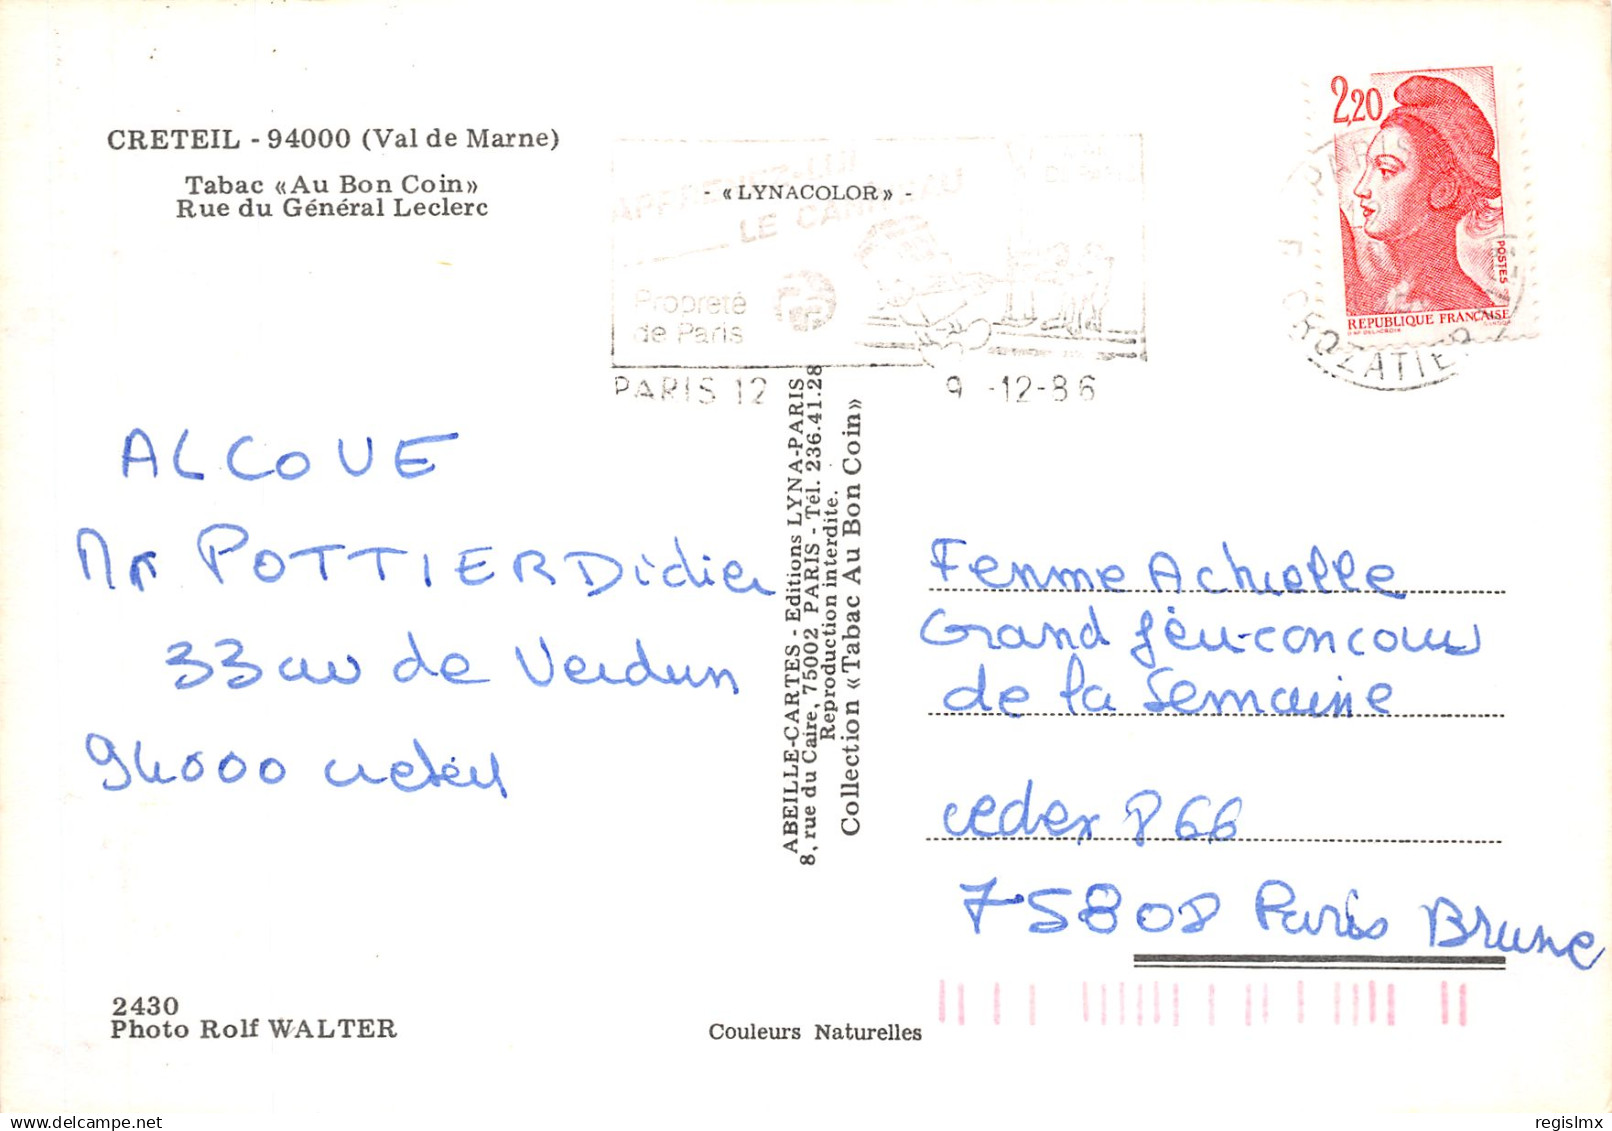 CRETEIL - 94000 (Val de Marne)
Tabac «Au Bon Coin»
Rue du Général Leclerc
- «LYNACOLOR» -
APPRENEZ-LUI
LE CANIVEAU
Propreté
de Paris
PARIS 12 9 -12-86
2,20
POSTES
REPUBLIQUE FRANÇAISE
ALCOVE
Mr POTTIER Didier
33 av de Verdun
94000 Creteil
ABEILLE-CARTES - Editions LYNA-PARIS
8, rue du Caire, 75002 PARIS - Tél. 236.41.28
Reproduction interdite.
Collection «Tabac Au Bon Coin»
Femme Actuelle
Grand jeu-concours
de la Semaine
cedex 866
75808 Paris Brune
2430
Photo Rolf WALTER
Couleurs Naturelles
regislmx